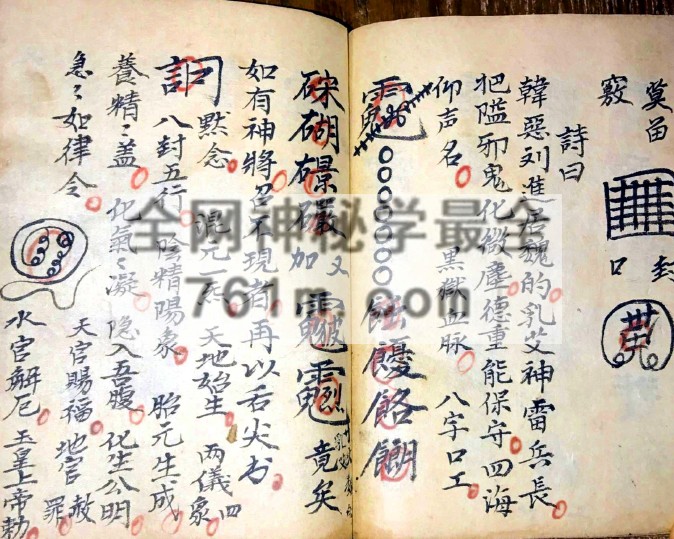 封
竅 口
詩曰
韓惡列進居魏的乳艾神雷兵長
把隘邪鬼化微塵德重能保守四海
仰声名 黑獄血脉 八字口工
加又 竟矣
如有神將召不現者再以舌尖书
默念 混元一炁 天地始生 两儀四象
八封五行 陰精陽象 胎元生成
養精〻盖 化氣〻凝 隐入吾腹 化生公明
急〻如律令 天官賜福 地官赦罪
水官解厄 玉皇上帝勅
全网神秘学最全
761m.com